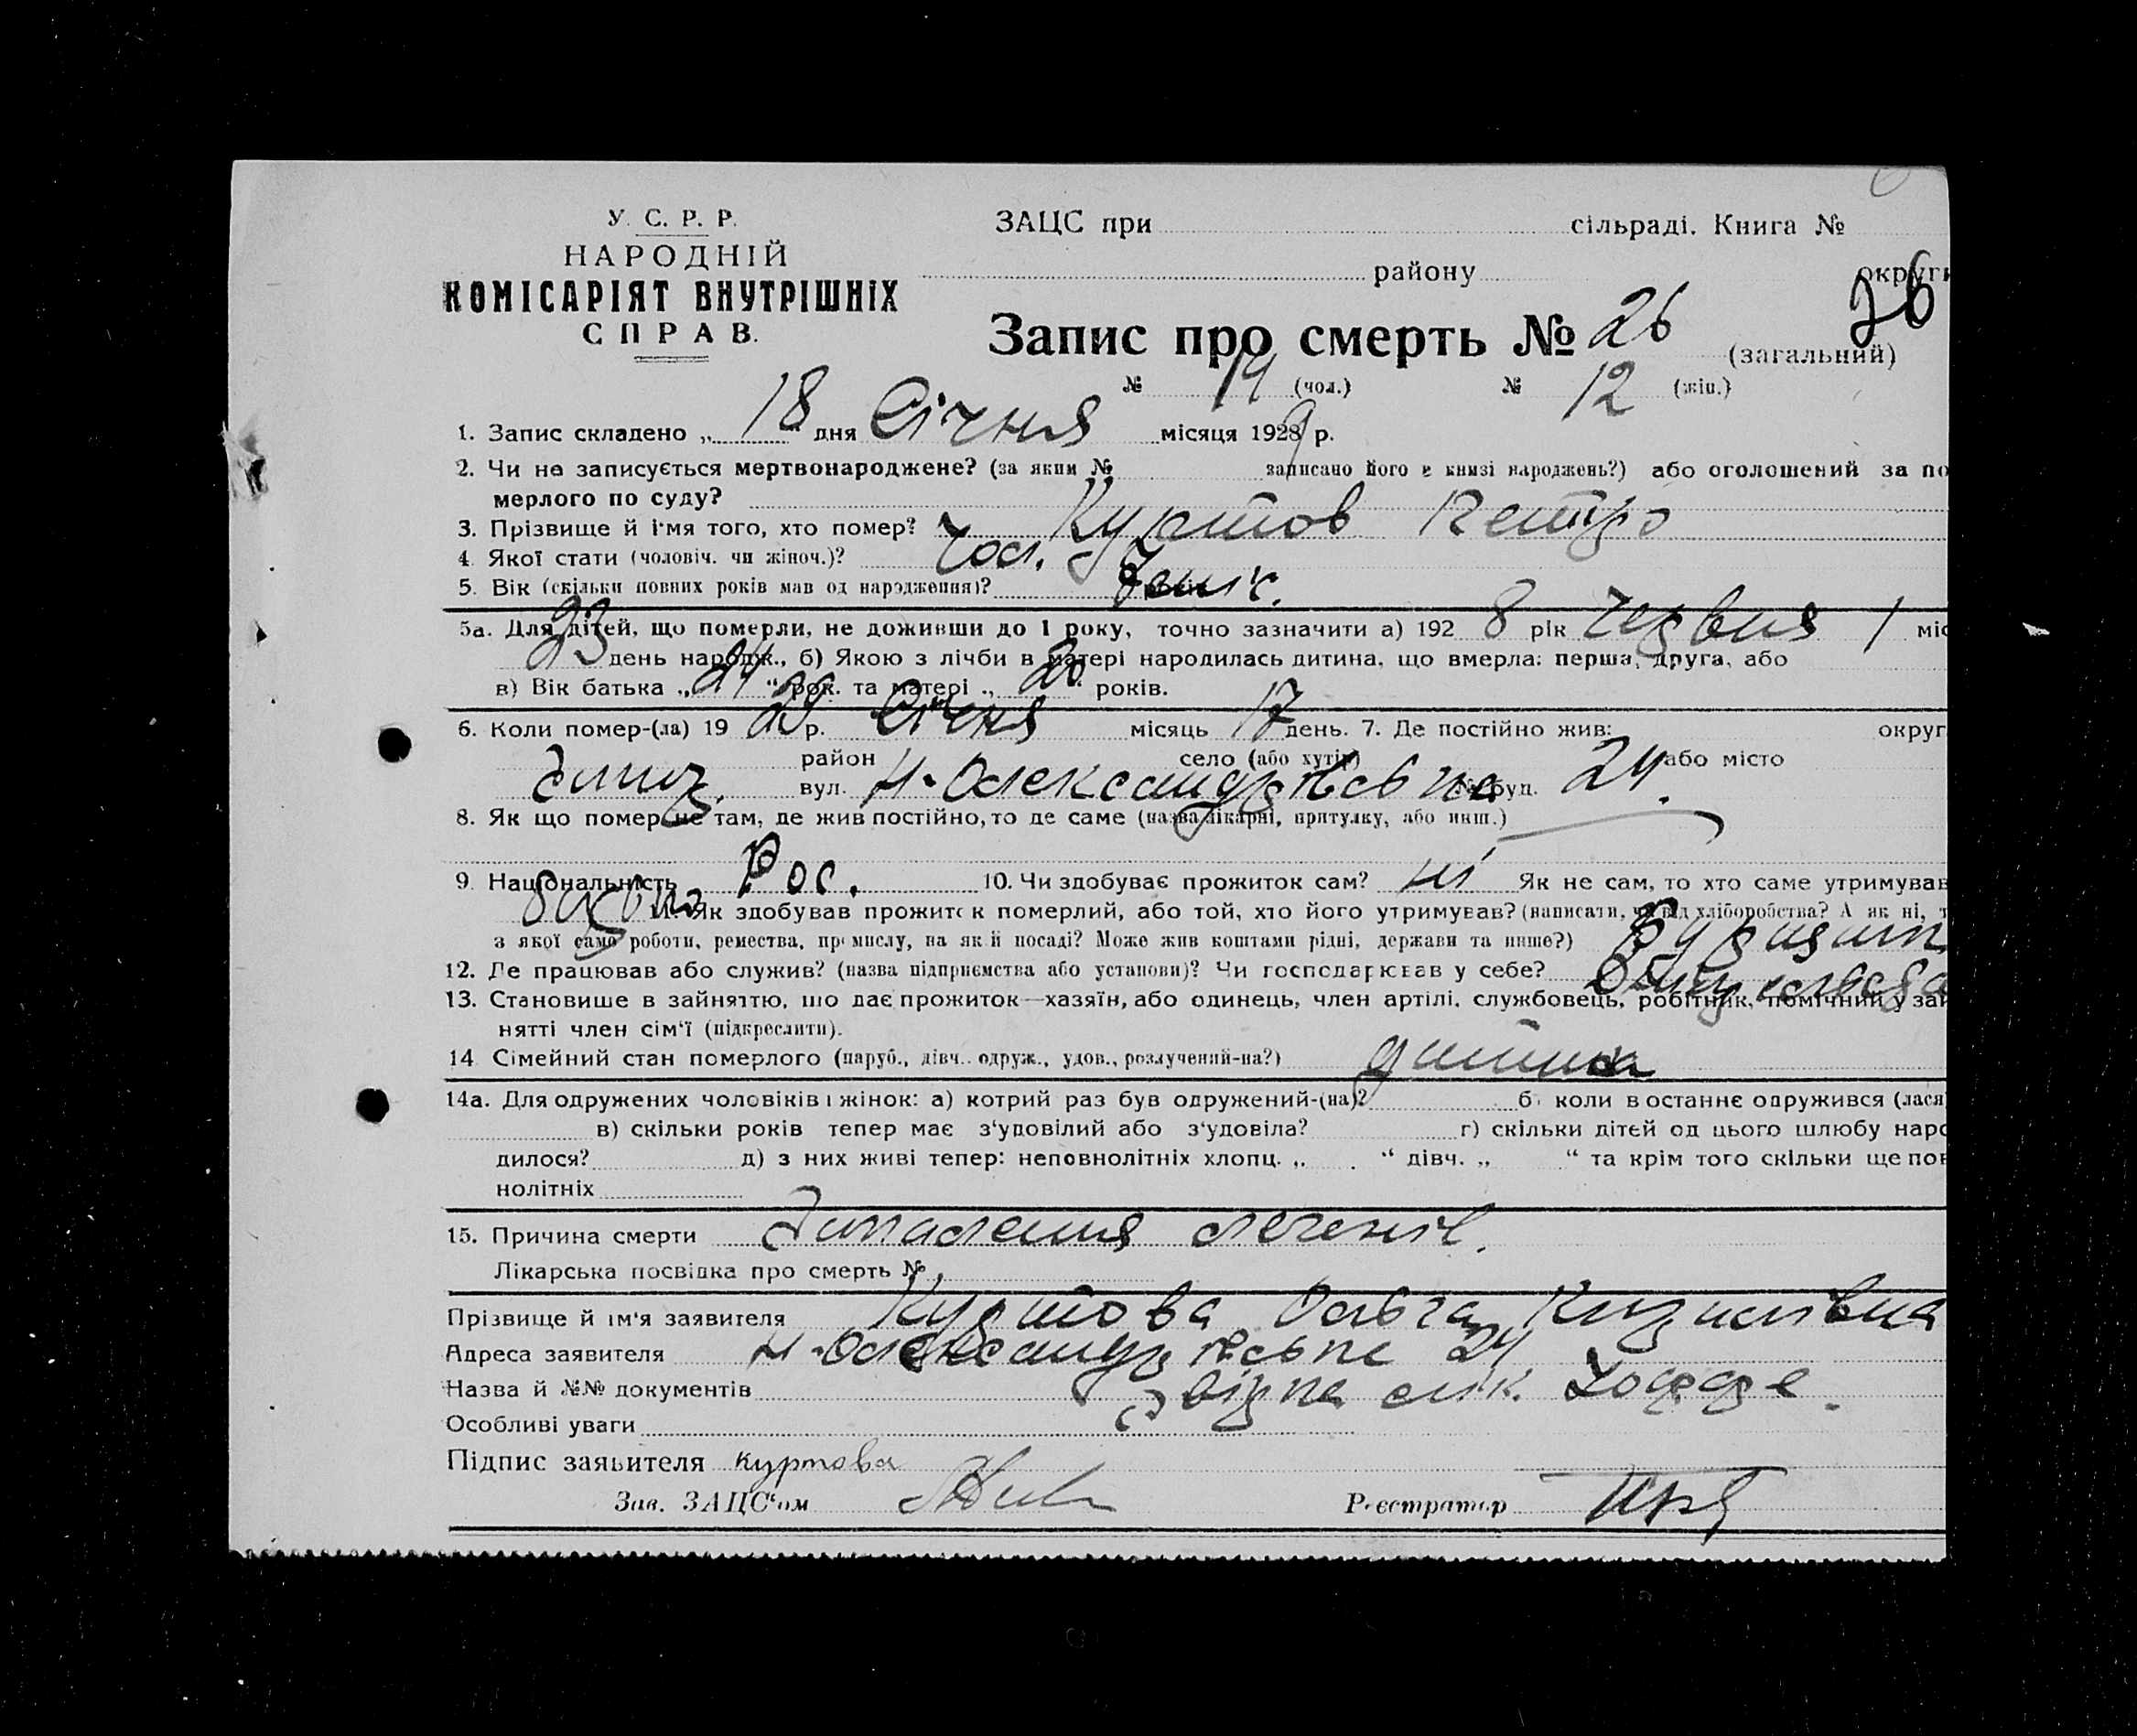 У. С. Р. Р.
НАРОДНІЙ
КОМІСАРІЯТ ВНУТРІШНІХ
СПРАВ.
ЗАЦС при сільраді. Книга №
району округи
Запис про смерть № 26 (загальний) 26
№ 14 (чол.) № 12 (жін.)
1. Запис складено „18“ дня Січня місяця 1929 р.
2. Чи не записується мертвонароджене? (за яким № записано його в книзі народжень?) або оголошений за по
мерлого по суду?
3. Прізвище й ім'я того, хто помер? Куртов Петро
4. Якої стати (чоловіч. чи жіноч.)? Чол.
5. Вік (скільки повних років мав од народження)? 7 міс.
5а. Для дітей, що померли, не доживши до 1 року, точно зазначити а) 1928 рік Червня міс
23 день народж., б) Якою з лічби в матері народилась дитина, що вмерла: перша, друга, або 1
в) Вік батька „24“ рок. та матері „20“ років.
6. Коли помер-(ла) 1929 р. Січня місяць 17 день. 7. Де постійно жив: округ
район село (або хутір) або місто
вул. Н-Олександрівське № буд. 24.
8. Як що помер не там, де жив постійно, то де саме (назва лікарні, притулку, або инш.)
9. Національність Рос. 10. Чи здобуває прожиток сам? ні Як не сам, то хто саме утримував
батько 11. Як здобував прожиток померлий, або той, хто його утримував? (написати, чи від хліборобства? А як ні, т
з якої само роботи, ремества, промислу, на якій посаді? Може жив коштами рідні, держави та инше?)
12. Де працював або служив? (назва підприємства або установи)? Чи господарював у себе?
13. Становище в зайняттю, що дає прожиток—хазяїн, або одинець, член артілі, службовець, робітник, помічний у зай
нятті член сім'ї (підкреслити).
14. Сімейний стан померлого (паруб., дівч., одруж., удов., розлучений-на?) дитина
14а. Для одружених чоловіків і жінок: а) котрий раз був одружений-(на)? б) коли востаннє одружився (лася
в) скільки років тепер має з'удовілий або з'удовіла? г) скільки дітей од цього шлюбу наро
дилося? д) з них живі тепер: неповнолітніх хлопц. „ “ дівч. „ “ та крім того скільки ще пов
нолітніх
15. Причина смерти Запалення легенів.
Лікарська посвідка про смерть №
Прізвище й ім'я заявителя Куртова Ольга Кузьмівна
Адреса заявителя Н-Олександрівське 24
Назва й №№ документів
Особливі уваги
Підпис заявителя Куртова
Зав. ЗАЦС'ом Реєстратор